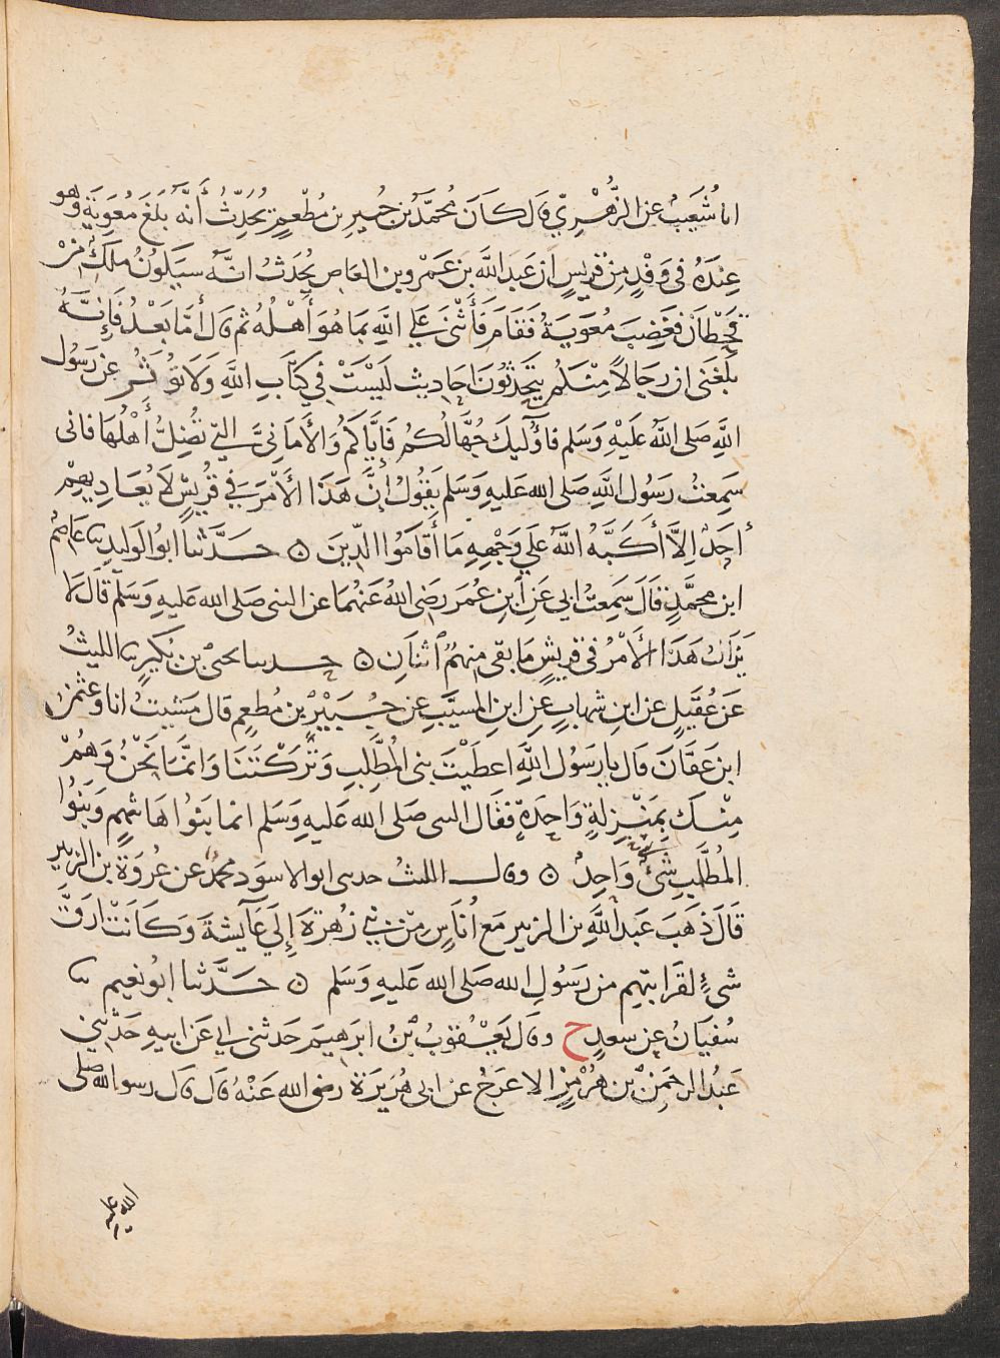 انا شُعَيبٌ عن الزُّهْرِيّ قال كَانَ مُحمّد بن جُبيرِ بن مُطْعِمٍ يُحَدِّثُ أَنَّهُ بَلَغَ مُعَوِيَةَ وهُو
عِنْدَهُ فى وَفْدٍ مِن قريشٍ ان عَبد اللَّه بن عَمْرو بن العاصِ يُحَدِّثُ انَّهُ سَيَكُونُ مَلِكٌ مِنْ
قَحْطَانَ فغَضِبَ مُعَوِيَةُ فَقَامَ فَأَثْنَى عَلى اللَّهِ بِمَا هُوَ أَهْلُهُ ثم قال أمَّا بَعْدُ فَإِنَّهُ
بلَغَنى ان رجَالاً مِنْكُم يتَحَدثُونَ احَادِيث لَيْسَتْ فِي كِتَابِ اللَّهِ وَلَا تُؤْثَرُ عن رَسُولِ
اللَّهِ صَلى اللَّهُ عَلَيْهِ وَسَلم فاؤلَيِكَ جُهَّالُكُم فَإيَّاكمُ وَالأَمَانِىَّ التي تُضِلُّ أَهْلَهَا فانى
سَمِعتُ رَسُولَ اللَّهِ صَلى الله عَليهِ وَسَلم يَقُولُ إنَّ هَذَا الأَمْرَ فِي قُرَيشٍ لَا يُعَادِيهِمْ
أَحَدٌ إلاَّ أكَبَّهُ اللَّهُ عَلَى وَجْهِهِ مَا أَقَامُوا الدِّينَ ۝ حَدَّثنا ابو الوَليدِ ثنا عَاصِمُ
ابن محمَّدٍ قالَ سَمِعتُ ابي عَنِ ابنِ عُمَرَ رَضِى اللهُ عَنهُمَا عن النبى صَلى الله عَليهِ وَسَلَم قالَ لَا
يَزَالُ هَذَا الأَمْرُ فى قريشٍ مَا بقى مِنهُمْ اثنَانِ ۝ حدثنا يحيَى بن بُكَيرٍ ثنا الليثُ
عَن عُقَيلٍ عن ابنِ شهابٍ عَنِ ابنِ المسيَّبِ عن جُبَيْرِ بن مُطعِمٍ قال مَشيتُ انا وعثمن
ابن عَفَّانَ قال يا رَسُولَ اللَّهِ اعطَيْتَ بنى المُطَّلِبِ وَتَرَكْتَنَا وَانمَّا نَحْنُ وَهُمْ
مِنْكَ بِمَنْزِلةٍ وَاحِدَةٍ فقَال النبى صَلى الله عَليهِ وَسَلم انما بَنُوا هَاشِمٍ وَبَنُوا
المُطَّلبِ شَئٌ وَاحِدٌ ۝ وقال الليثُ حدثنى ابو الاسوَد محمّدٌ عن عُروَةَ بن الزبيرِ
قَالَ ذَهَبَ عَبدُ اللَّهِ بن الزبيرِ مَعَ أُنَاسٍ مِنْ بَني زُهْرَةَ إلَى عَائِشَةَ وَكَانَتْ ارَقَّ
شىءٍ لقَرابتِهِم من رَسُولِ الله صَلى الله عَليهِ وَسَلم ۝ حَدَّثنا ابو نُعَيمٍ ثنا
سُفيَانُ عن سعدٍ ح وقال يَعْقوبُ بْنُ ابرَهِيمَ حَدثنى ابي عَن ابيهِ حَدَّثني
عَبْدُ الرحمنِ بْن هُرْمُزٍ الاعرَجُ عن ابى هُرَيرَةَ رضى الله عَنْهُ قال قال رسول الله صلى
الله عليه